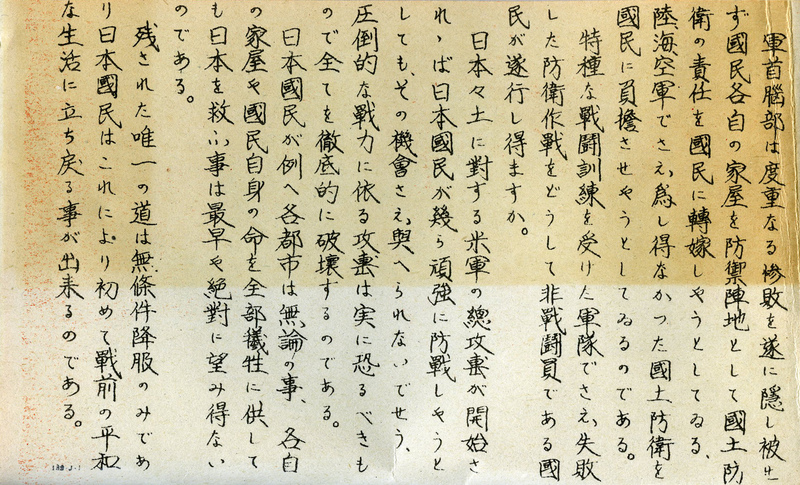 軍首腦部は度重なる惨敗を遂に隱し被せ
ず國民各自の家屋を防禦陣地として國土防
衛の責任を國民に轉嫁しやうとしてゐる、
陸海空軍でさえ爲し得なかつた國土防衛を
國民に負擔させやうとしてゐるのである。
特種な戰鬪訓練を受けた軍隊でさえ失敗
した防衛作戰をどうして非戰鬪員である國
民が遂行し得ますか。
日本々土に對する米軍の總攻擊が開始さ
れゝば日本國民が幾ら頑強に防戰しやうと
しても、その機會さえ與へられないでせう、
圧倒的な戰力に依る攻擊は実に恐るべきも
ので全てを徹底的に破壊するのである。
日本國民が例へ各都市は無論の事、各自
の家屋や國民自身の命を全部犠牲に供して
も日本を救ふ事は最早や絶對に望み得ない
のである。
残された唯一の道は無條件降服のみであ
り日本國民はこれにより初めて戰前の平和
な生活に立ち戻る事が出来るのである。
138 J-1